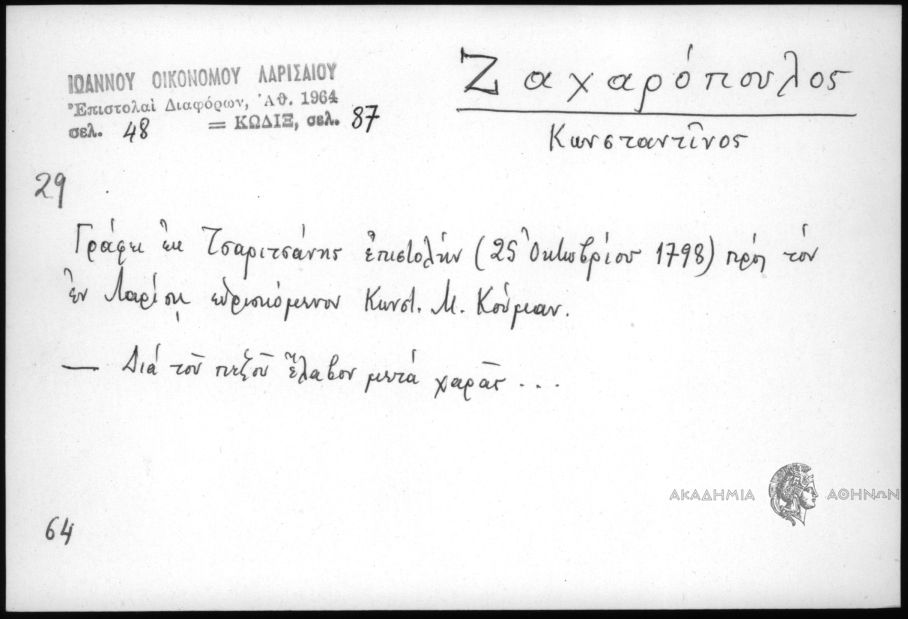 ΙΩΑΝΝΟΥ ΟΙΚΟΝΟΜΟΥ ΛΑΡΙΣΑΙΟΥ
Ἐπιστολαὶ Διαφόρων, Ἀθ. 1964
σελ. 48 = ΚΩΔΙΞ, σελ. 87
Ζαχαρόπουλος
Κωνσταντῖνος
29
Γράφει ἐκ Τσαριτσάνης ἐπιστολήν (25 Ὀκτωβρίου 1798) πρός τόν
ἐν Λαρίσῃ εὑρισκόμενον Κωνστ. Μ. Κούμαν.
— Διά τοῦ πεζοῦ ἔλαβον μετά χαρᾶς ...
ΑΚΑΔΗΜΙΑ ΑΘΗΝΩΝ
64